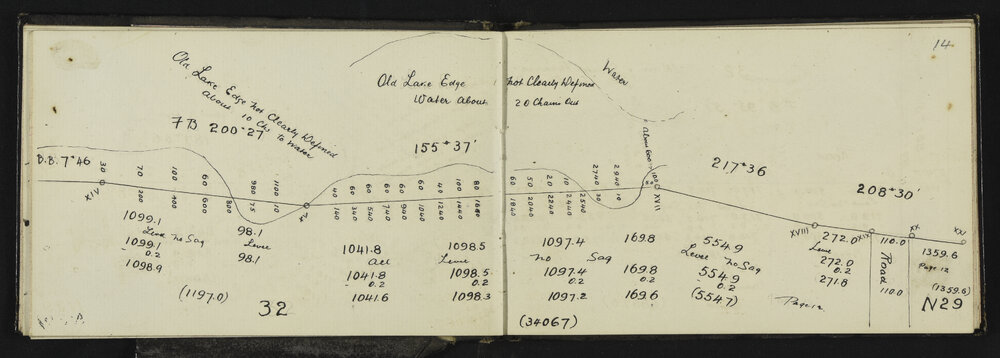 14
Old Lake Edge not Clearly Defined
About 10 Chs to Water
Old Lake Edge not Clearly Defined
Water About 20 Chains Out
Water
F B 200°27
155°37'
217°36
208°30'
B.B. 7°46
About 600
30 70 100 60 980 1100
200 400 600 800 75 10
40 60 60 70 60 60 40 100 80
140 340 540 740 940 1040 1240 1440 1640
60 50 20 10 2740 2940
1840 2040 2240 2440 2540 30 10
XIV
XVII
XVIII
XIX
XX
1099.1
Level No Sag
1099.1
0.2
1098.9
98.1
Level
98.1
1041.8
All
1041.8
0.2
1041.6
1098.5
Level
1098.5
0.2
1098.3
1097.4
No Sag
1097.4
0.2
1097.2
169.8
169.8
0.2
169.6
554.9
Level No Sag
554.9
0.2
(554.7)
272.0
Level
272.0
0.2
271.8
110.0
Road
110.0
1359.6
Page 12
(1359.6)
(1197.0)
32
(34067)
Page 12
N29